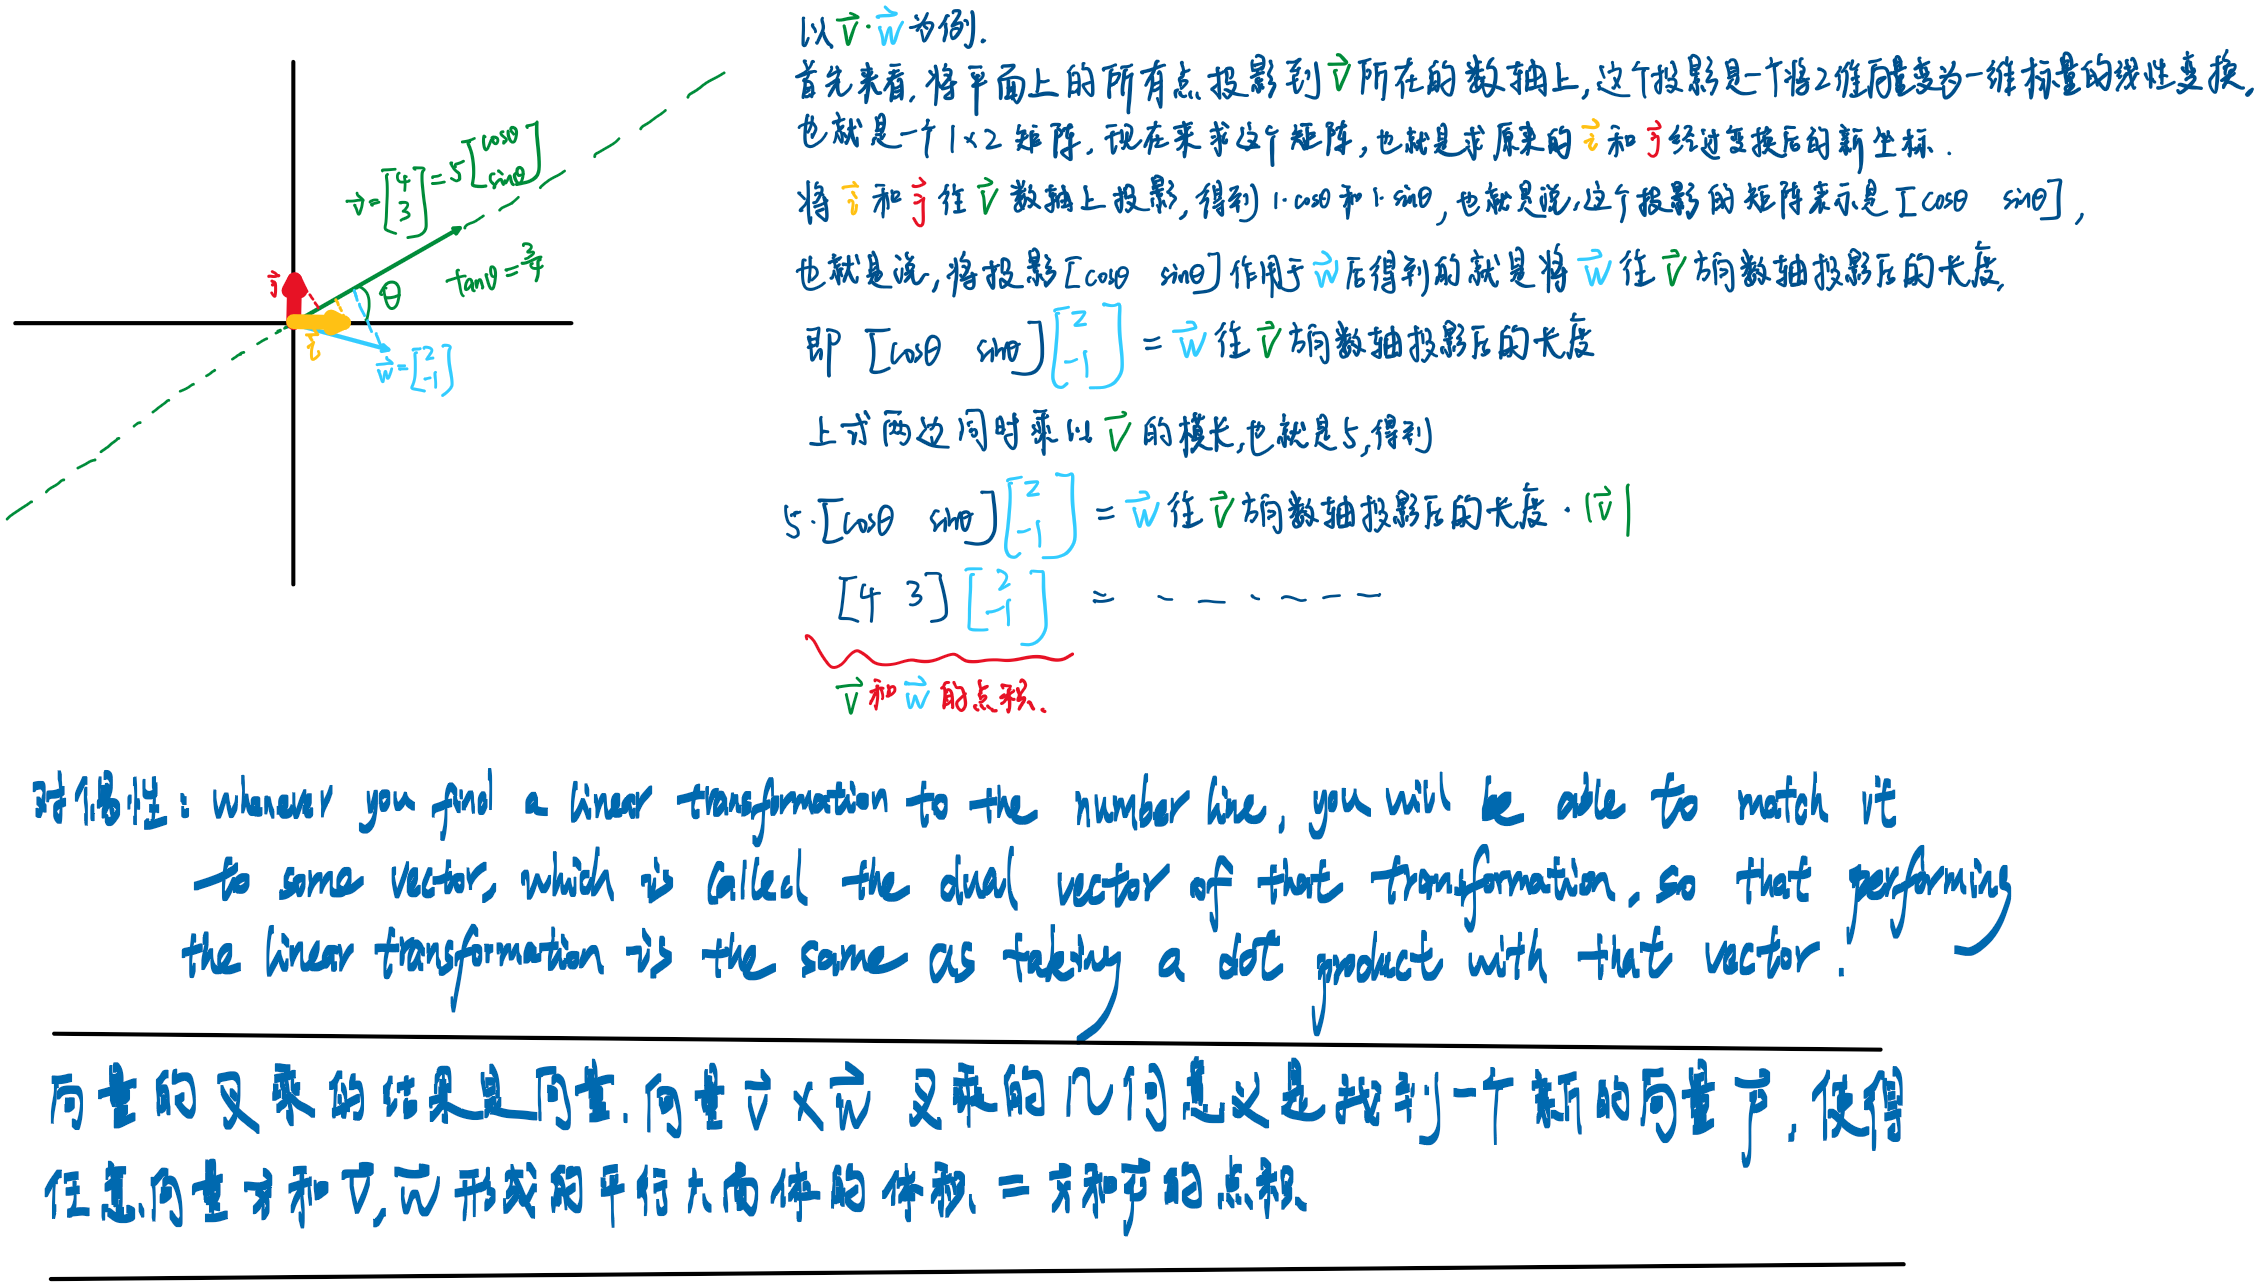 以 v⃗·w⃗ 为例.
首先来看,将平面上的所有点投影到 v⃗ 所在的数轴上,这个投影是一个将2维向量变为一维标量的线性变换,
也就是一个 1×2 矩阵,现在来求这个矩阵,也就是求原来的 i⃗ 和 j⃗ 经过变换后的新坐标.
将 i⃗ 和 j⃗ 往 v⃗ 数轴上投影,得到 1·cosθ 和 1·sinθ,也就是说,这个投影的矩阵表示是 [cosθ sinθ],
也就是说,将投影 [cosθ sinθ] 作用于 w⃗ 后得到的就是将 w⃗ 往 v⃗ 方向数轴投影后的长度,
即 [cosθ sinθ] [2 -1] = w⃗ 往 v⃗ 方向数轴投影后的长度
上式两边同时乘以 v⃗ 的模长,也就是5,得到
5·[cosθ sinθ] [2 -1] = w⃗ 往 v⃗ 方向数轴投影后的长度 · |v⃗|
[4 3] [2 -1] = - - - - - -
v⃗ 和 w⃗ 的点积.
v⃗ = [4 3] = 5 [cosθ sinθ]
tanθ = 3/4
θ
j⃗
i⃗
w⃗ = [2 -1]
对偶性: whenever you find a linear transformation to the number line, you will be able to match it
to some vector, which is called the dual vector of that transformation, so that performing
the linear transformation is the same as taking a dot product with that vector.
向量的叉乘的结果是向量.向量 v⃗ × w⃗ 叉乘的几何意义是找到一个新的向量 p⃗, 使得
任意向量 x⃗ 和 v⃗, w⃗ 形成的平行六面体的体积 = x⃗ 和 p⃗ 的点积